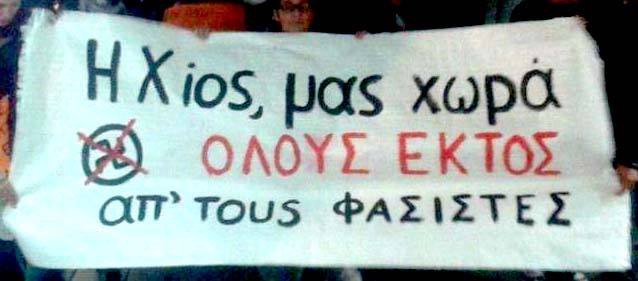 Η Χίος, μας χωρά
ΟΛΟΥΣ ΕΚΤΟΣ
απ' τους ΦΑΣΙΣΤΕΣ